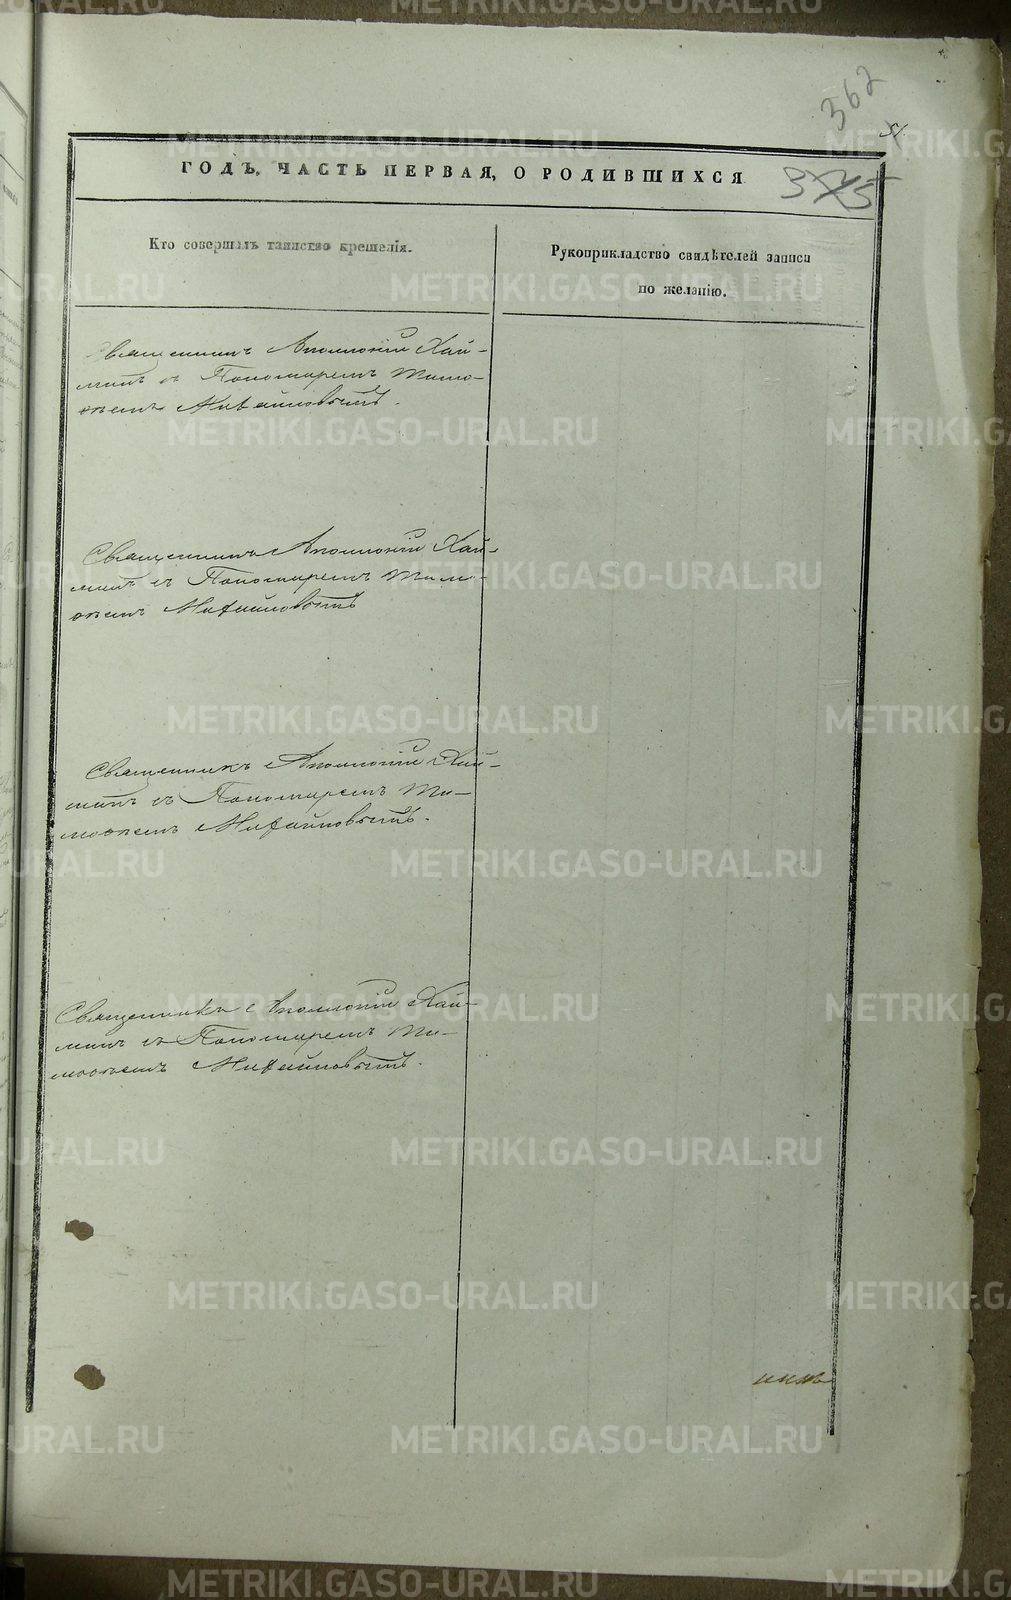 362
51.
ГОДЪ, ЧАСТЬ ПЕРВАЯ, О РОДИВШИХСЯ
375
Кто совершалъ таинство крещенія.
Рукоприкладство свидѣтелей записи
по желанію.
Священникъ Аполлоній Хай-
минъ съ Пономаремъ Тимо-
ѳеемъ Михайловымъ.
Священникъ Аполлоній Хай-
минъ съ Пономаремъ Тимо-
ѳеемъ Михайловымъ
Священникъ Аполлоній Хай-
минъ съ Пономаремъ Ти-
моѳеемъ Михайловымъ.
Священникъ Аполлоній Хай-
минъ съ Пономаремъ Ти-
моѳеемъ Михайловымъ.
METRIKI.GASO-URAL.RU